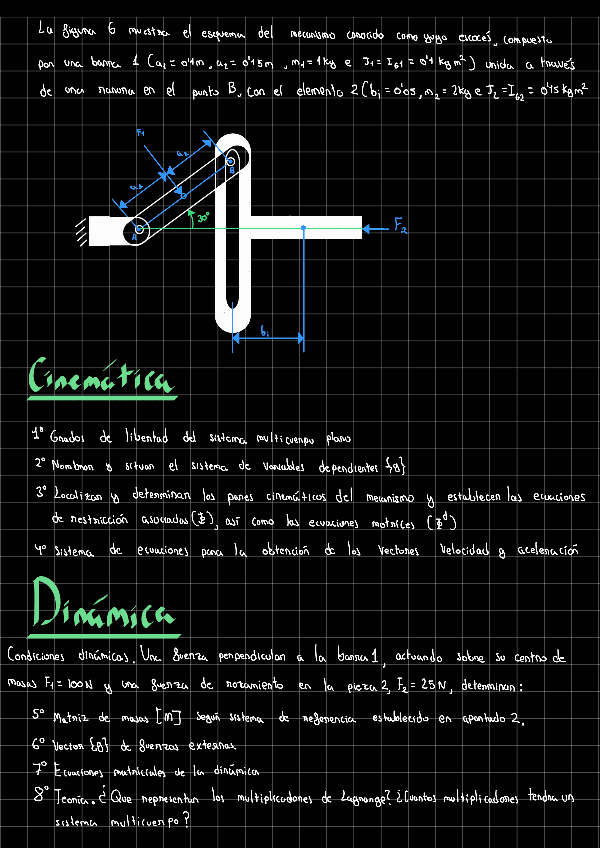 La figura 6 muestra el esquema del mecanismo conocido como yugo escocés, compuesto
por una barra 1 (a1 = 0'1m, a2 = 0'15m, m1 = 1kg e J1 = I61 = 0'1 kgm²) unida a través
de una ranura en el punto B, con el elemento 2 (bi = 0'05, m2 = 2kg e J2 = I62 = 0'15kgm²
F1
a2
B
a1
30°
A
F2
bi
Cinemática
1º Grados de libertad del sistema multicuerpo plano
2º Nombran y situan el sistema de variables dependientes {q}
3º Localizan y determinan los pares cinemáticos del mecanismo y establecen las ecuaciones
de restricción asociadas (Φ), así como las ecuaciones motrices (Φᵈ)
4º Sistema de ecuaciones para la obtención de los vectores velocidad y aceleración
Dinámica
Condiciones dinámicas. Una fuerza perpendicular a la barra 1, actuando sobre su centro de
masas F1 = 100N y una fuerza de rozamiento en la pieza 2, F2 = 25N, determinan:
5º Matriz de masas [M] según sistema de referencia establecido en apartado 2.
6º Vector {g} de fuerzas externas
7º Ecuaciones matriciales de la dinámica
8º Teoría. ¿Que representan los multiplicadores de Lagrange? ¿Cuantos multiplicadores tendra un
sistema multicuerpo?